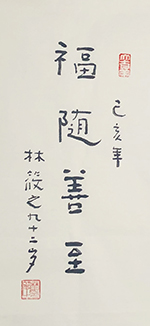 己亥年
福随善至
林筱之九十二岁